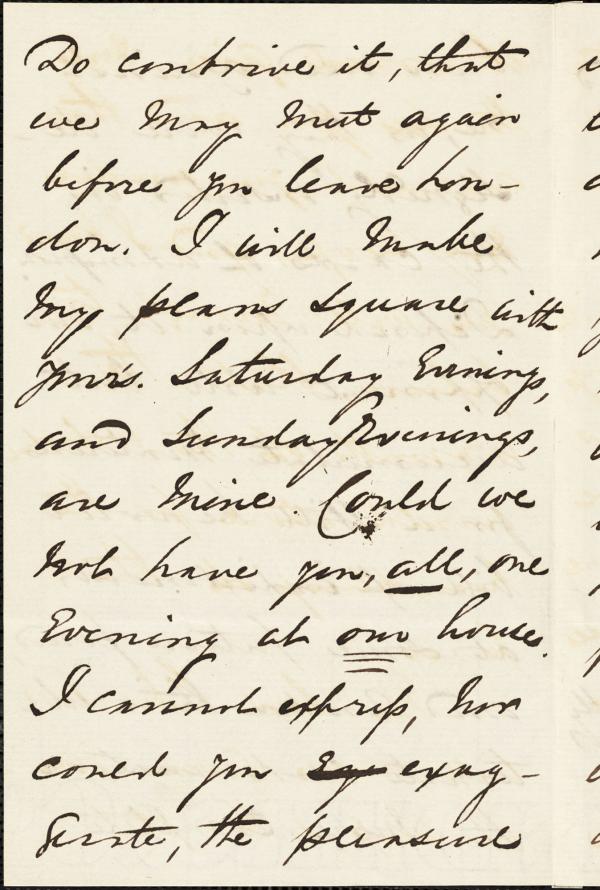 Do contrive it, that
we may meet again
before you leave Lon-
don. I will make
my plans square with
yours. Saturday Evenings,
and Sunday Evenings,
are mine. Could we
not have you, all, one
Evening at our house.
I cannot express, nor
could you exag-
gerate, the pleasure